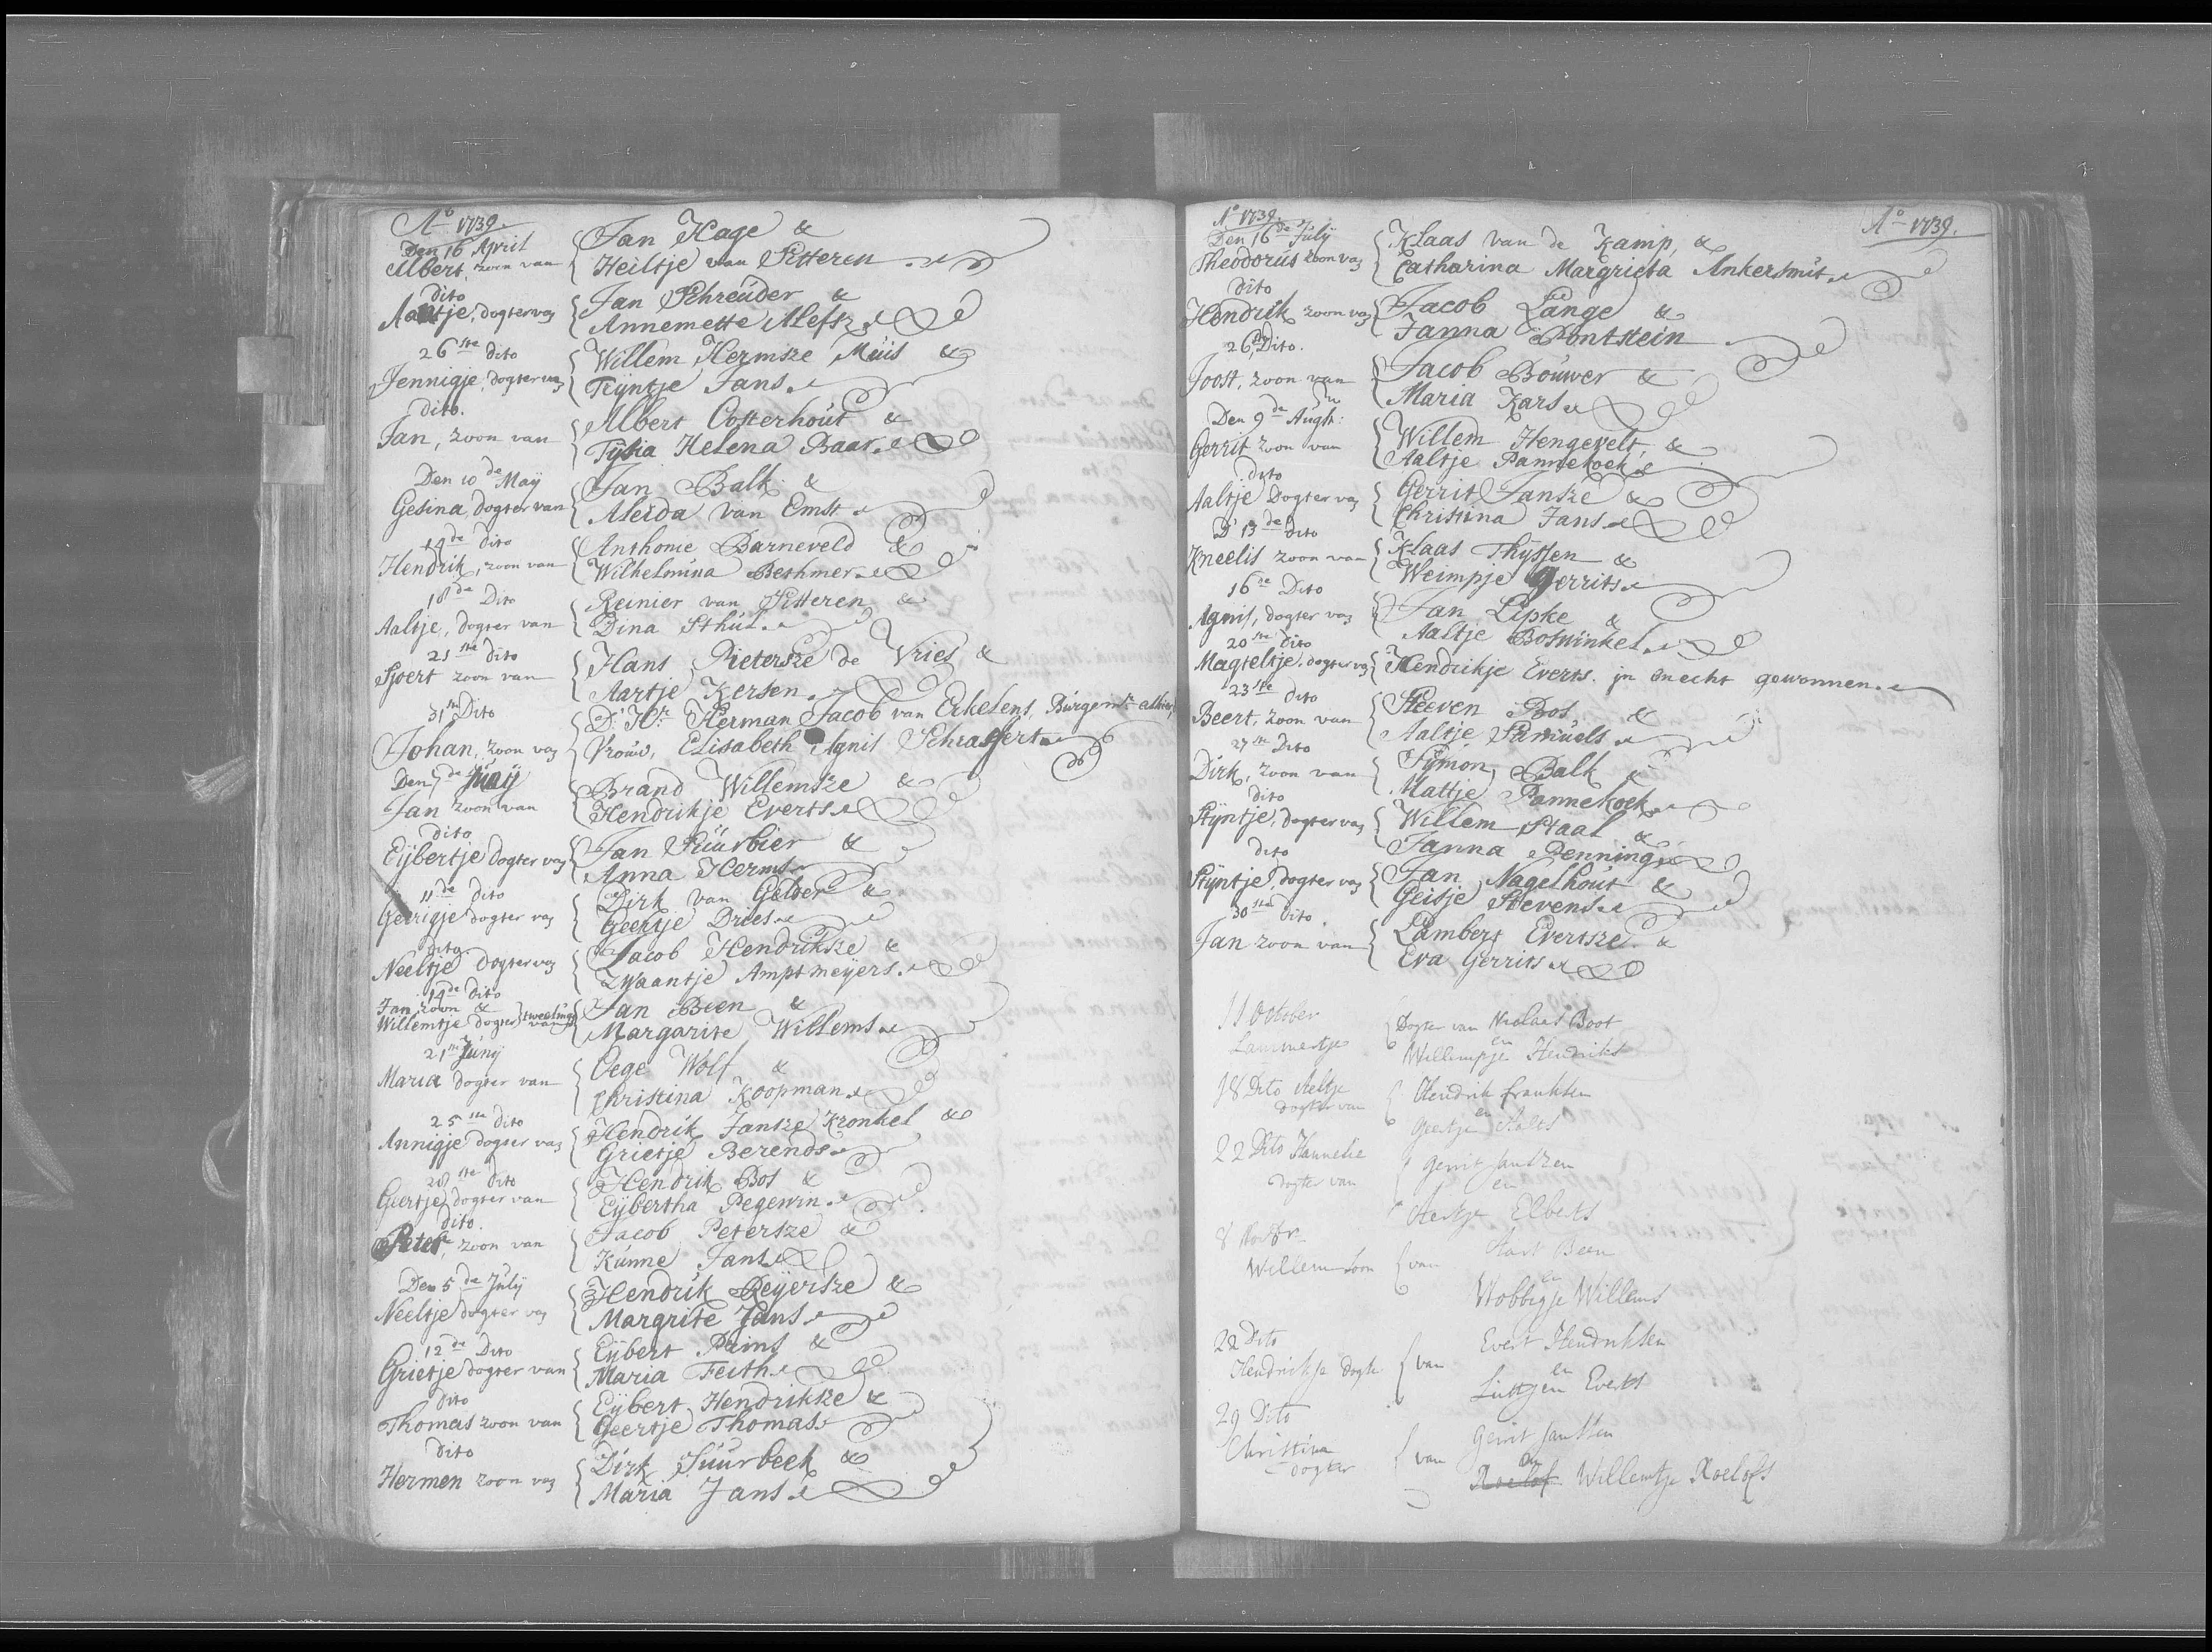 Ao 1739.
Den 16 April
Albert, zoon van
Jan Hage &
Heiltje van Sitteren
dito
Aaltje, dogter van
Jan Schreuder &
Annemette Alefsz
26ste dito
Jennigje, dogter van
Willem Hermsze Muis &
Tryntje Jans
dito.
Jan, zoon van
Albert Oosterhout &
Tysia Helena Baar
Den 10de May
Gesina, dogter van
Jan Balk &
Aleida van Emst
14de dito
Hendrik, zoon van
Anthonie Barneveld &
Wilhelmina Bethmer
18de Dito
Aaltje, dogter van
Reinier van Sitteren &
Dina Sthul
21ste dito
Sjoert zoon van
Hans Pietersze de Vries &
Aartje Kersen
31ste Dito
Johan, zoon van
D' Hr. Herman Jacob van Erkelens, Burgemr. alhier,
Vrouw, Elisabeth Agnis Schrassert
Den 7de Juny
Jan zoon van
Brand Willemsze &
Hendrikje Everts
dito
Eybertje dogter van
Jan Suurbier &
Anna Herms
11de dito
Gerrigje dogter van
Dirk van Gelder &
Geertje Dries
dito
Neeltje dogter van
Jacob Hendriksze &
Zwaantje Amptmeyers
14de dito
Jan zoon &
Willemtje dogter tweeling van
Jan Been &
Margarite Willems
21ste Juny
Maria dogter van
Oege Wolf &
Christina Koopman
25ste dito
Annigje dogter van
Hendrik Jansze Kronkel &
Grietje Berends
28ste dito
Geertje dogter van
Hendrik Bos &
Eybertha Pegewin
dito.
Peter, zoon van
Jacob Petersze &
Kunne Jans
Den 5de July
Neeltje dogter van
Hendrik Reyersze &
Margrite Jans
12de Dito
Grietje dogter van
Eybert Prins &
Maria Feith
dito
Thomas zoon van
Eybert Hendrikze &
Geertje Thomas
dito
Hermen zoon van
Dirk Suurbeek &
Maria Jans
Ao 1739.
Ao 1739.
Den 16de July
Theodorus zoon van
Klaas van de Kamp, &
Catharina Margrieta Ankersmit
dito
Hendrik zoon van
Jacob Lange &
Janna Bontstein
26ste Dito.
Joost, zoon van
Jacob Bouwer &
Maria Kars
Den 9de Augst:
Gerrit zoon van
Willem Hengevelt, &
Aaltje Pannekoek
dito
Aaltje Dogter van
Gerrit Jansze &
Christina Jans
D' 13de dito
Kneelis zoon van
Klaas Thyssen &
Weimpje Gerrits
16de Dito
Agnis, dogter van
Jan Lipke &
Aaltje Boswinkel
20ste dito
Magteltje dogter van
Hendrikje Everts. in onecht gewonnen.
23ste dito
Beert, zoon van
Steven Bos &
Aaltje Samuels
27ste Dito
Dirk, zoon van
Symon Balk &
Mattje Pannekoek
dito
Styntje, dogter van
Willem Staal &
Janna Penning
dito
Styntje, dogter van
Jan Nagelhout &
Geisje Stevens
30ste dito
Jan zoon van
Lambert Evertsze &
Eva Gerrits
11 October
Lammertje
Dogter van Niclaas Boot
en
Willempje Hendriks
18 Dito Aeltje
dogter van
Hendrik franksen
en
Geertje Aalts
22 Dito Hannelie
dogter van
Gerrit Janszen
en
Aertje Elberts
8 Novbr
Willem Soon van
Aart Been
en
Wobbigje Willems
22 Dito
Hendrikje dogtr van
Evert Hendriksen
en
Luttjen Everts
29 Dito
Christina
dogter van
Gerrit Janssen
en
Roelof Willemtje Roelofs